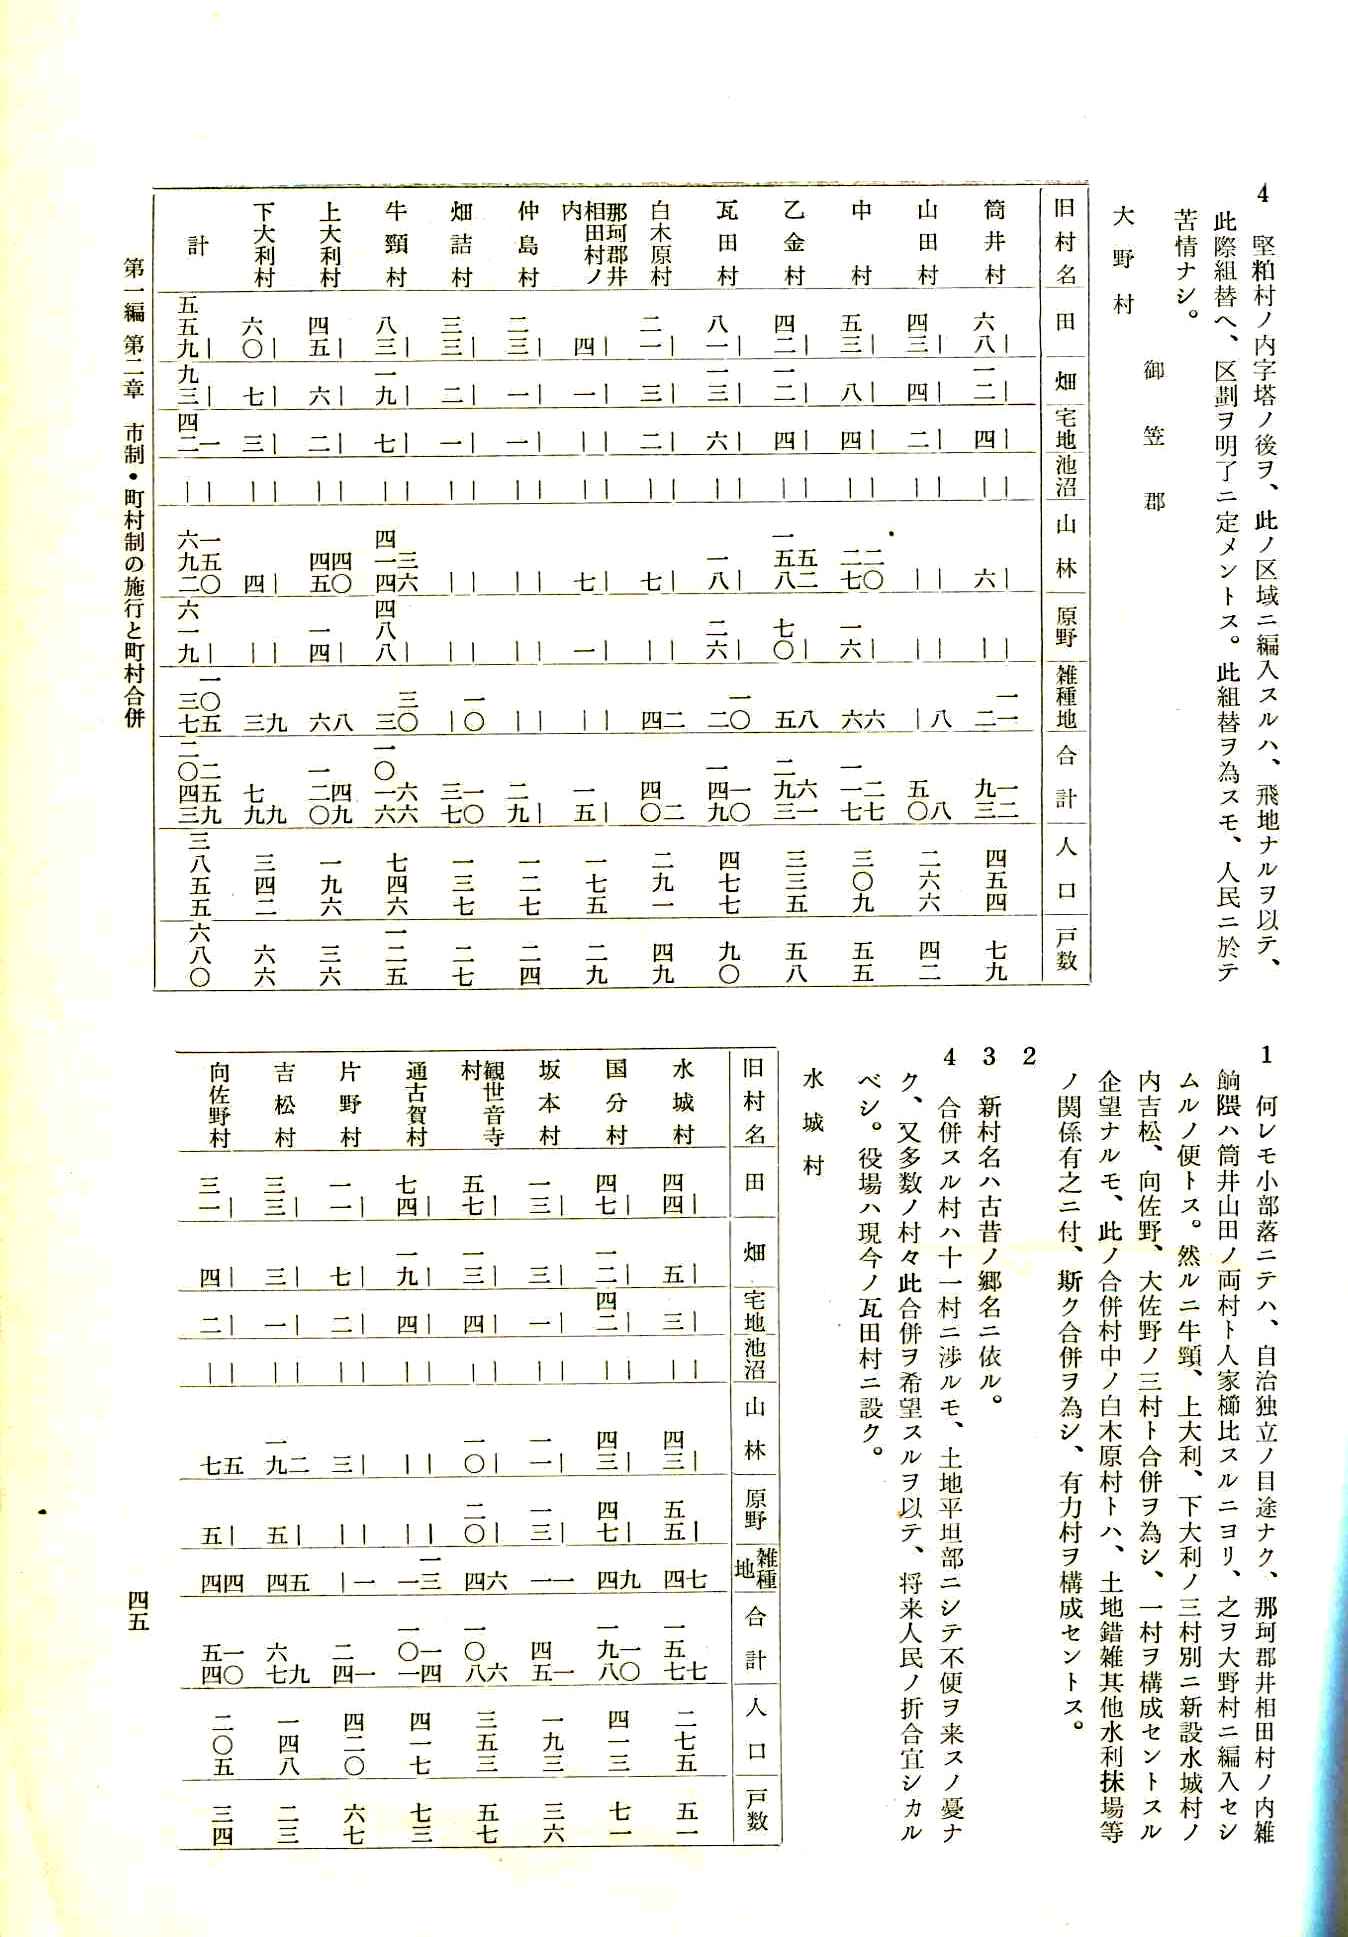 4　堅粕村ノ内字塔ノ後ヲ、此ノ区域ニ編入スルハ、飛地ナルヲ以テ、
此際組替ヘ、区劃ヲ明了ニ定メントス。此組替ヲ為スモ、人民ニ於テ
苦情ナシ。
御笠郡
大野村
旧村名 田 畑 宅地 池沼 山林 原野 雑種地 合計 人口 戸数
筒井村 ｜ 六八 ｜ 一二 ｜ 四 ｜ ｜ ｜ 六 ｜ ｜ 一一 二 一二 九三 四五四 七九
山田村 ｜ 四三 ｜ 四 ｜ 二 ｜ ｜ ｜ ｜ ｜ ｜ 八 ｜ 八 五〇 二六六 四二
中村 ｜ 五三 ｜ 八 ｜ 四 ｜ ｜ 二〇 二七 ｜ 一六 六 六 二七 一一七 三〇九 五五
乙金村 ｜ 四二 ｜ 一二 ｜ 四 ｜ ｜ 五二 一五八 ｜ 七〇 八 五 六一 二九三 三三五 五八
瓦田村 ｜ 八一 ｜ 一三 ｜ 六 ｜ ｜ ｜ 一八 ｜ 二六 一〇 二 一〇 一四九 四七七 九〇
白木原村 ｜ 二一 ｜ 三 ｜ 二 ｜ ｜ ｜ 七 ｜ ｜ 二 四 二 四〇 二九一 四九
那珂郡井相田村ノ内 ｜ 四 ｜ 一 ｜ ｜ ｜ ｜ ｜ 七 ｜ 一 ｜ ｜ ｜ 一五 一七五 二九
仲島村 ｜ 二三 ｜ 一 ｜ 一 ｜ ｜ ｜ ｜ ｜ ｜ ｜ ｜ ｜ 二九 一二七 二四
畑詰村 ｜ 三三 ｜ 二 ｜ 一 ｜ ｜ ｜ ｜ ｜ ｜ 一〇 ｜ 一〇 三七 一三七 二七
牛頸村 ｜ 八三 ｜ 一九 ｜ 七 ｜ ｜ 三六 四一四 ｜ 四八八 三〇 三 六六 一〇一六 七四六 一二五
上大利村 ｜ 四五 ｜ 六 ｜ 二 ｜ ｜ 四〇 四五 ｜ 一四 八 六 四九 一二〇 一九六 三六
下大利村 ｜ 六〇 ｜ 七 ｜ 三 ｜ ｜ ｜ 四 ｜ ｜ 九 三 九 七九 三四二 六六
計 ｜ 五五九 ｜ 九三 一 四二 ｜ ｜ 一五〇 六九二 ｜ 六一九 一〇五 三七 二五九 二〇四三 三八五五 六八〇
1　何レモ小部落ニテハ、自治独立ノ目途ナク、那珂郡井相田村ノ内雑
餉隈ハ筒井山田ノ両村ト人家櫛比スルニヨリ、之ヲ大野村ニ編入セシ
ムルノ便トス。然ルニ牛頸、上大利、下大利ノ三村別ニ新設水城村ノ
内吉松、向佐野、大佐野ノ三村ト合併ヲ為シ、一村ヲ構成セントスル
企望ナルモ、此ノ合併村中ノ白木原村トハ、土地錯雑其他水利抹場等
ノ関係有之ニ付、斯ク合併ヲ為シ、有力村ヲ構成セントス。
2
3　新村名ハ古昔ノ郷名ニ依ル。
4　合併スル村ハ十一村ニ渉ルモ、土地平坦部ニシテ不便ヲ来スノ憂ナ
ク、又多数ノ村々此合併ヲ希望スルヲ以テ、将来人民ノ折合宜シカル
ベシ。役場ハ現今ノ瓦田村ニ設ク。
水城村
旧村名 田 畑 宅地 池沼 山林 原野 雑種地 合計 人口 戸数
水城村 ｜ 四四 ｜ 五 ｜ 三 ｜ ｜ ｜ 四三 ｜ 五五 七 四 七 一五七 二七五 五一
国分村 ｜ 四七 ｜ 一二 ｜ 四二 ｜ ｜ ｜ 四三 ｜ 四七 九 四 一〇 一九八 四一三 七一
坂本村 ｜ 一三 ｜ 三 ｜ 一 ｜ ｜ ｜ 一一 ｜ 一三 一 一 一 四五 一九三 三六
観世音寺村 ｜ 五七 ｜ 一三 ｜ 四 ｜ ｜ ｜ 一〇 ｜ 二〇 六 四 六 一〇八 三五三 五七
通古賀村 ｜ 七四 ｜ 一九 ｜ 四 ｜ ｜ ｜ ｜ ｜ ｜ 一三 一 一四 一〇一 四一七 七三
片野村 ｜ 一一 ｜ 七 ｜ 二 ｜ ｜ ｜ 三 ｜ ｜ 一 ｜ 一 二四 四二〇 六七
吉松村 ｜ 三三 ｜ 三 ｜ 一 ｜ ｜ 二 一九 ｜ 五 五 四 九 六七 一四八 二三
向佐野村 ｜ 三一 ｜ 四 ｜ 二 ｜ ｜ 五 七 ｜ 五 四 四 一〇 五四 二〇五 三四
第一編 第二章　市制・町村制の施行と町村合併
四五